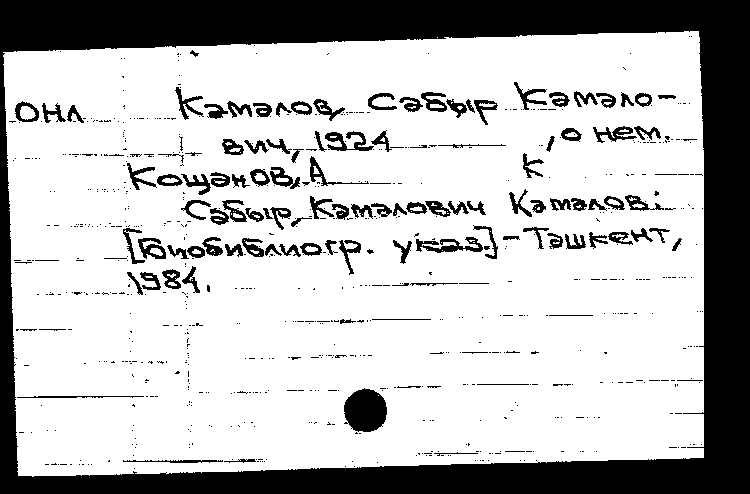 ОНЛ Кәмәлов, Сәбыр Кәмәло-
вич, 1924 , о нем.
Кощәнов, А К
Сәбыр, Кәмәлович Кәмәлов:
[Биобиблиогр. указ.] - Тәшкент,
1984.